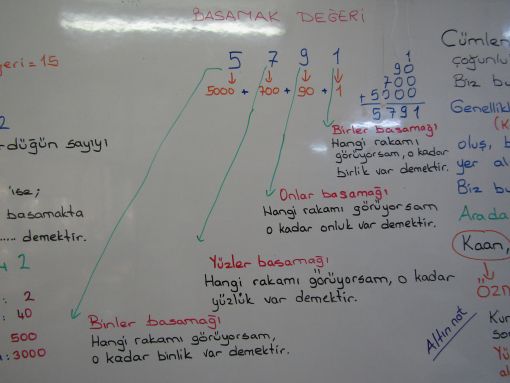 BASAMAK DEĞERİ
5 7 9 1
5000 + 700 + 90 + 1
1
90
700
+ 5000
5791
Birler basamağı
Hangi rakamı
görüyorsam, o kadar
birlik var demektir.
Onlar basamağı
Hangi rakamı görüyorsam
o kadar onluk var demektir.
Yüzler basamağı
Hangi rakamı görüyorsam, o kadar
yüzlük var demektir.
Binler basamağı
Hangi rakamı görüyorsam,
o kadar binlik var demektir.
eri = 15
2
rdüğün sayıyı
ise;
basamakta
..... demektir.
2
: 2
: 40
500
: 3000
Cümlen
çoğunlu
Biz bu
Genellikl
(K
oluş, b
yer al
Biz bu
Arada
Kaan,
ÖZN
Altın not
Kur
son
Yü
al